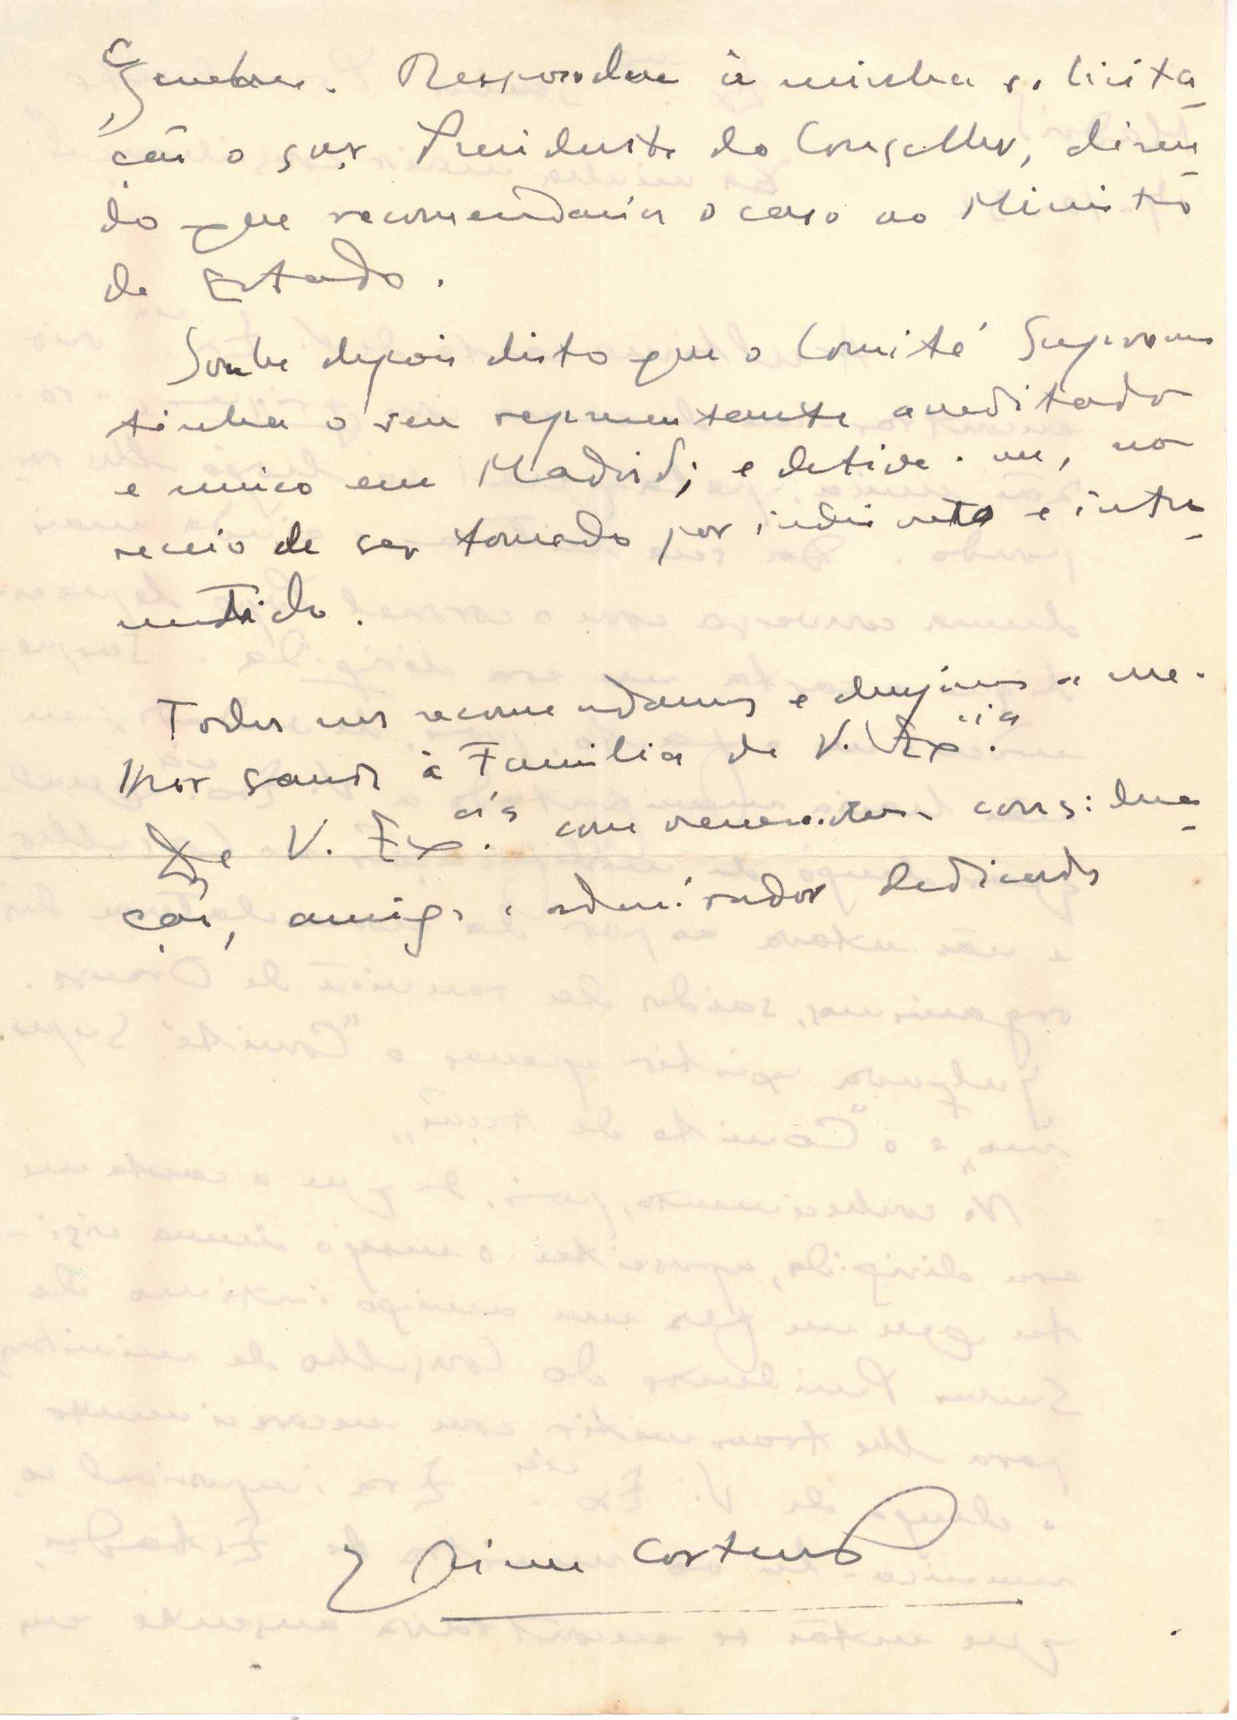 Genebra. Respondeu à minha solicita-
ção o snr Presidente do Conselho, dizen-
do que recomendaria o caso ao Ministro
de Estado.
Soube depois disto que o Comité Supremo
tinha o seu representante acreditado
e unico em Madrid; e detive-me, no
receio de ser tomado por indiscreto e intro-
metido.
Todos nos recomendamos e desejamos a me-
lhor saude à Familia de V. Ex.cia
De V. Ex.cia com veneradora considera-
ção, amigo e admirador dedicado
Jaime Cortesão